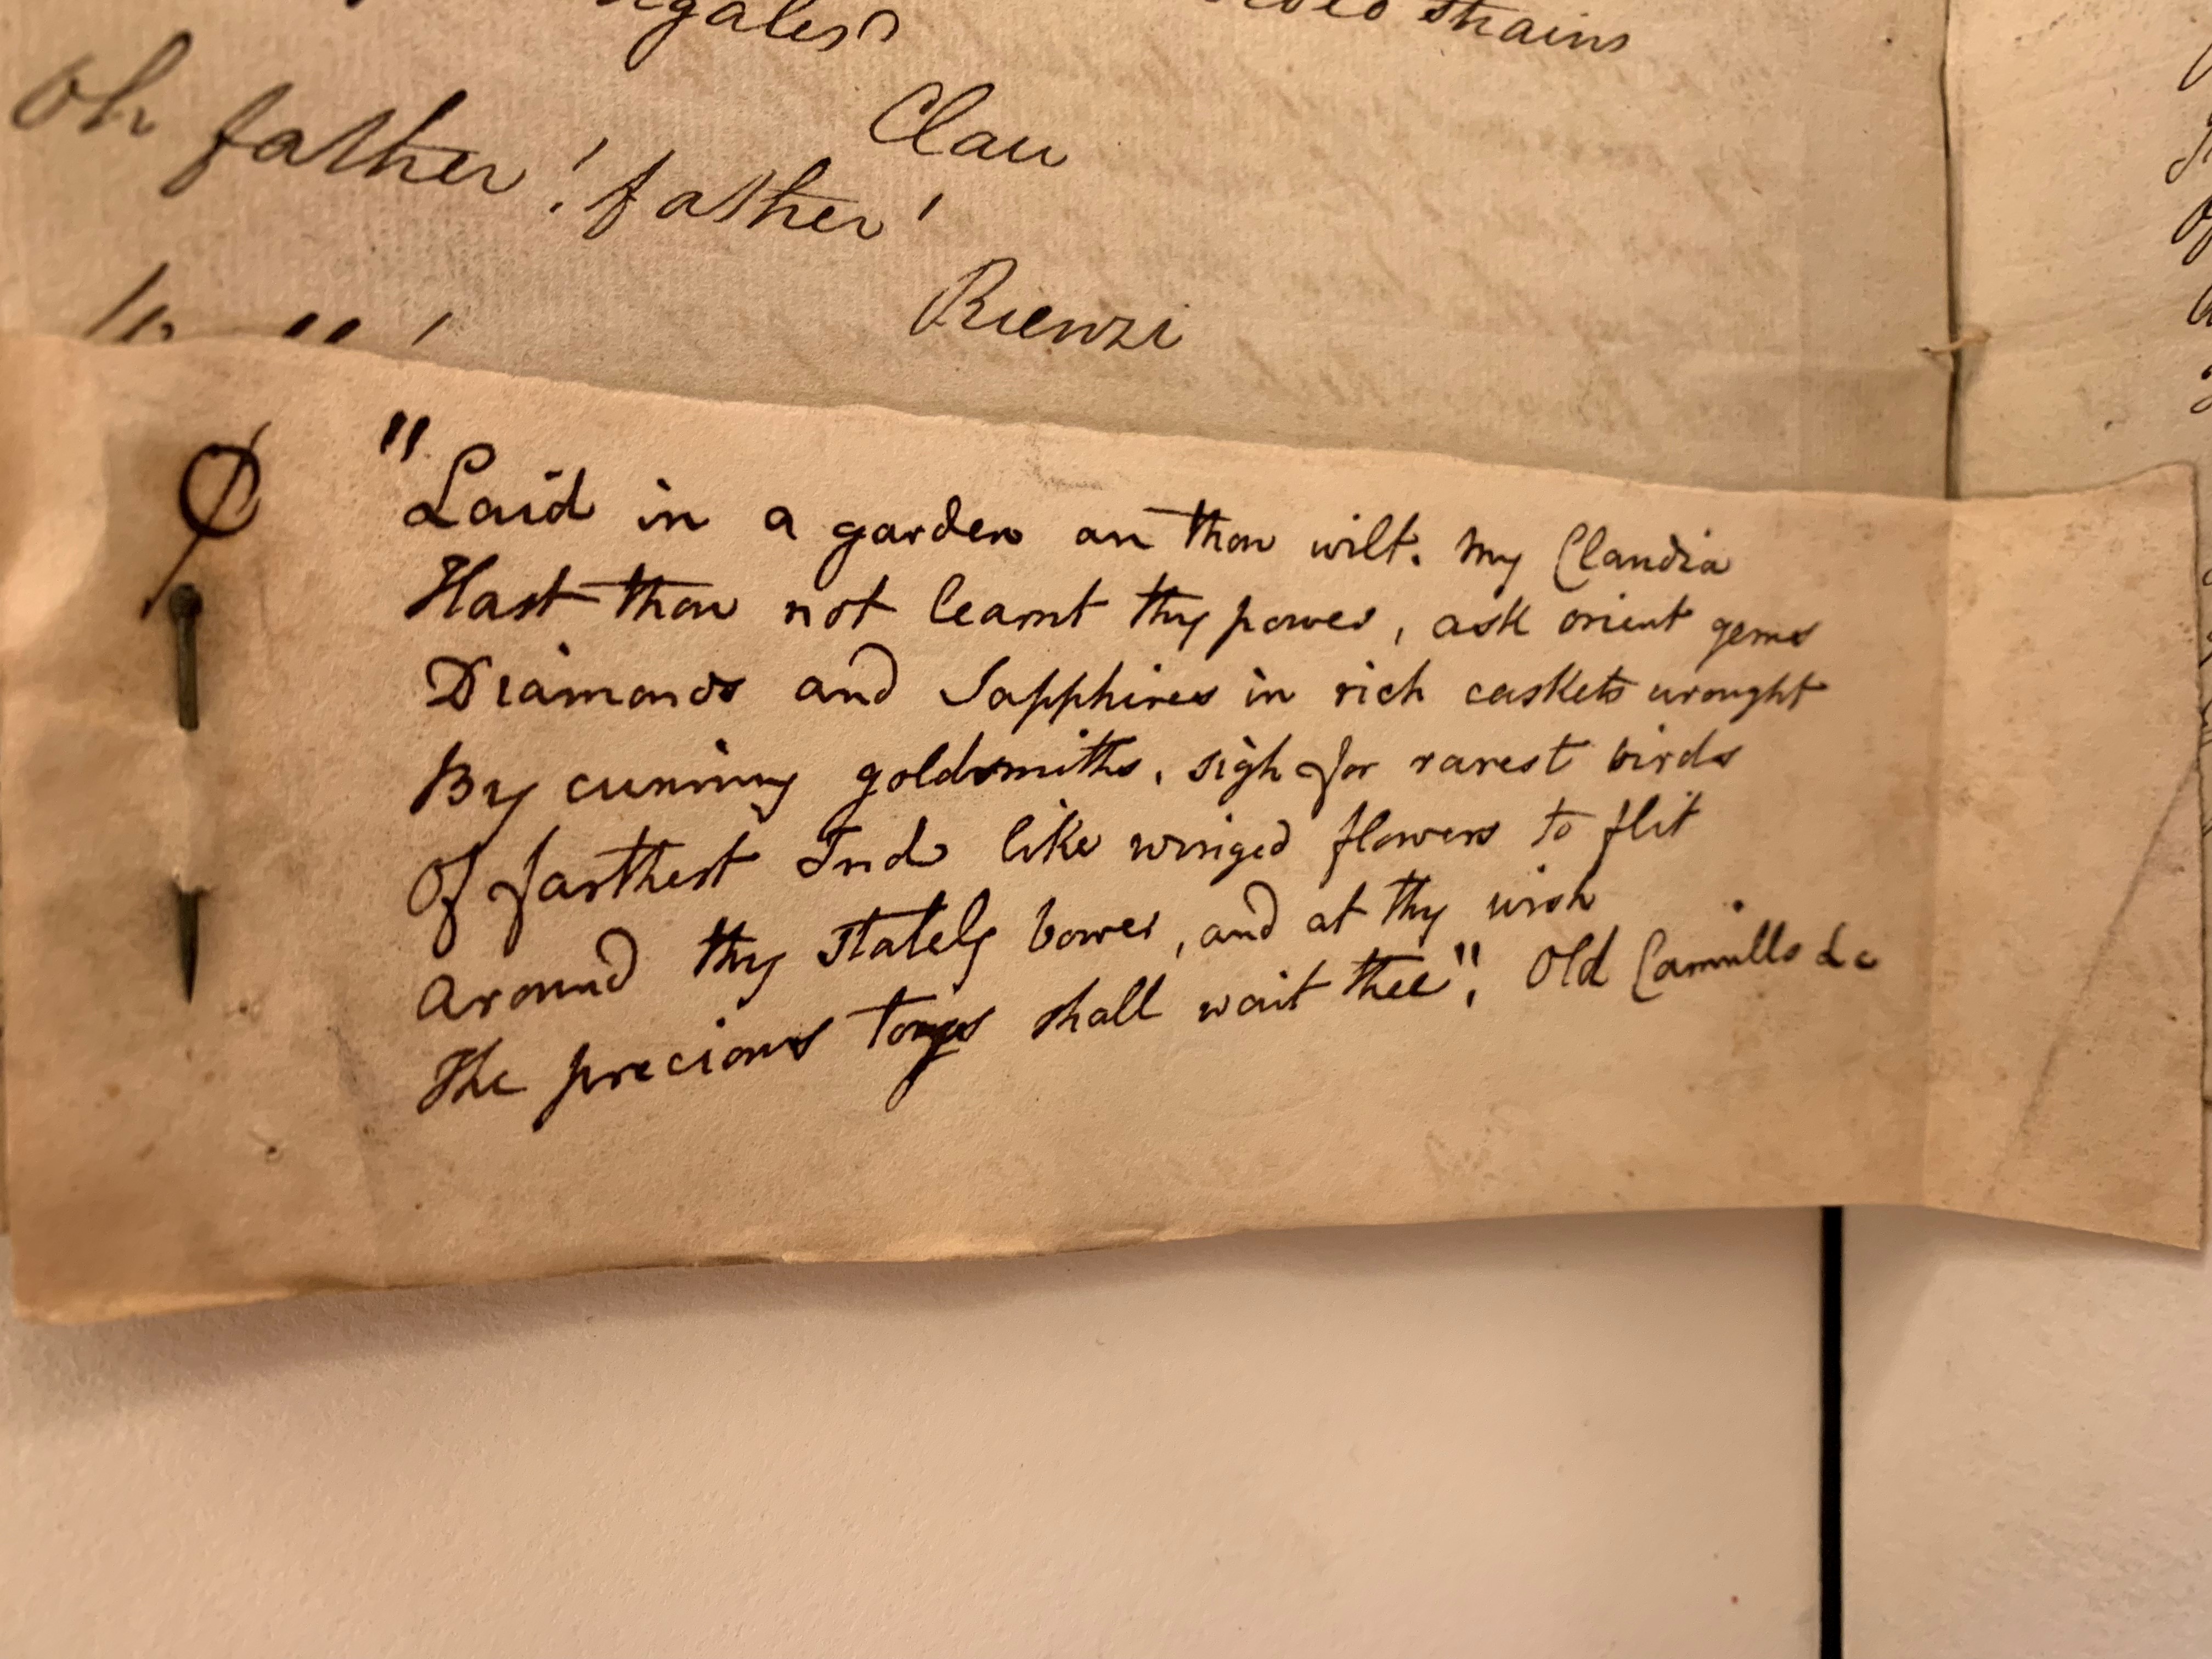 strains
Clau
Oh father! father!
Rienzi
"Laid in a garden an thou wilt. My Claudia
Hast thou not learnt thy power, ask orient gems
Diamonds and Sapphires in rich caskets wrought
By cunning goldsmiths, sigh for rarest birds
Of farthest Ind like winged flowers to flit
Around thy stately bower, and at thy wish
The precious toys shall wait thee", Old Camillo &c